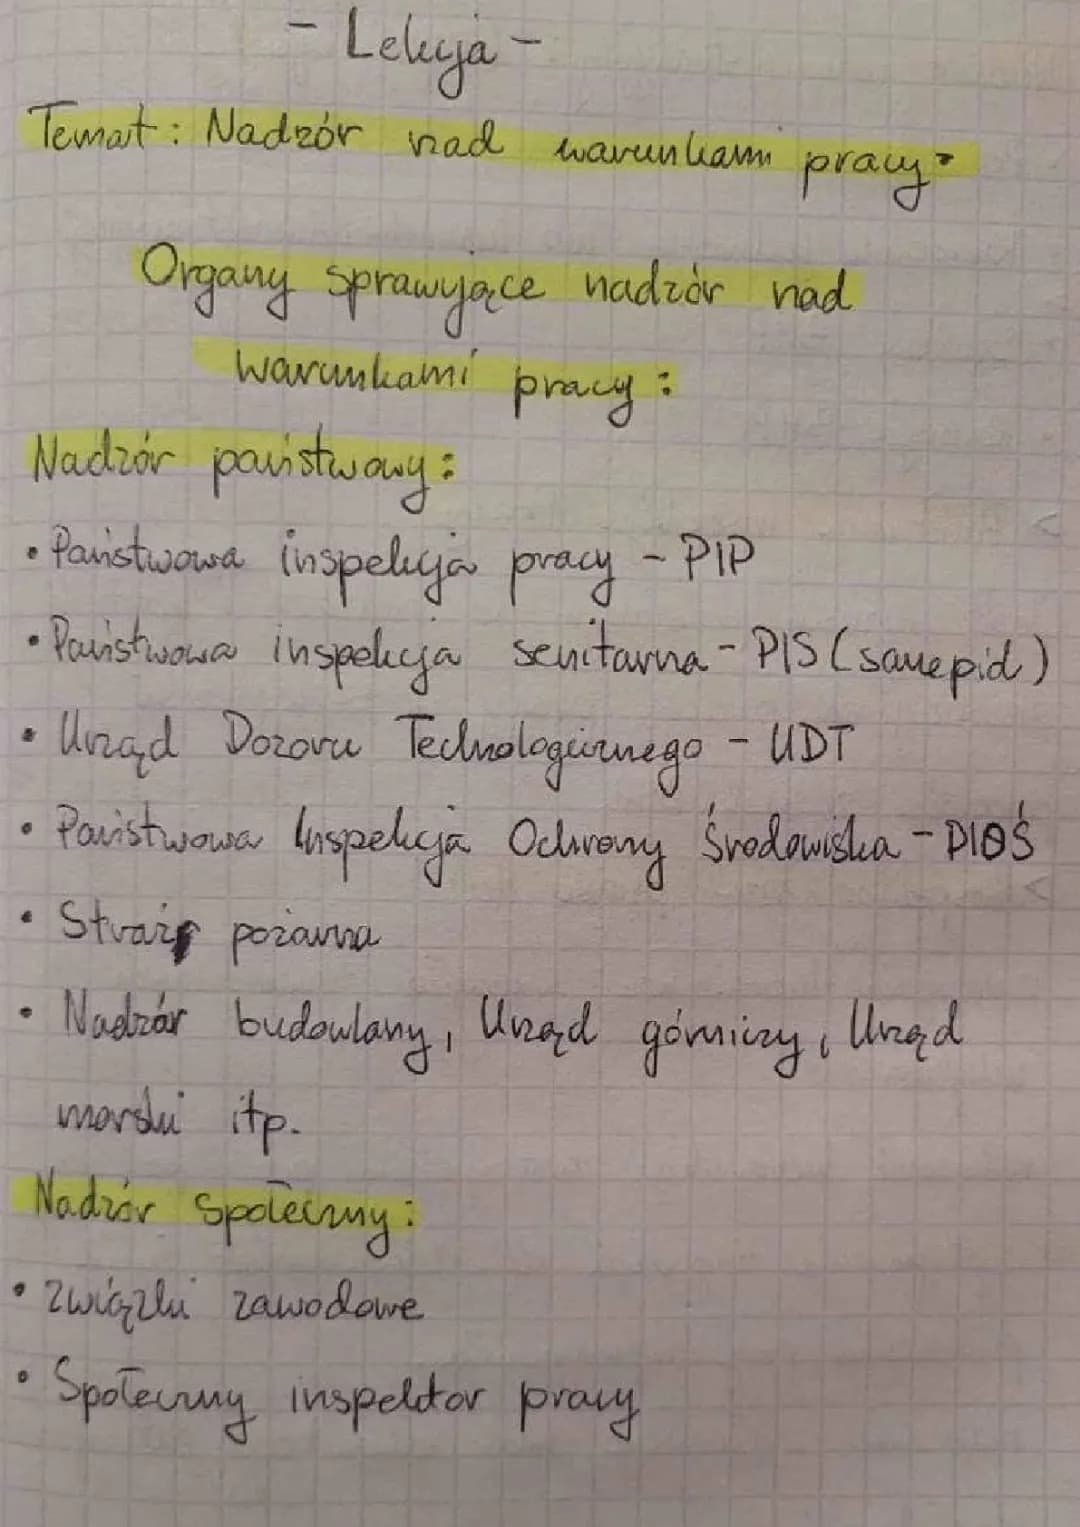 - Lekcja -
Temat: Nadzór nad warunkami pracy.
Organy sprawujące nadzór nad
warunkami pracy:
Nadzór państwowy:
• Państwowa inspekcja pracy - PIP
• Państwowa inspekcja senitarna - PIS (sanepid)
• Urząd Dozoru Technologicznego - UDT
• Państwowa Inspekcja Ochrony Środowiska - PIOŚ
• Straż pożarna
• Nadzór budowlany, Urząd górniczy, Urząd
morski itp.
Nadzór społeczny:
• związki zawodowe
• Społeczny inspektor pracy